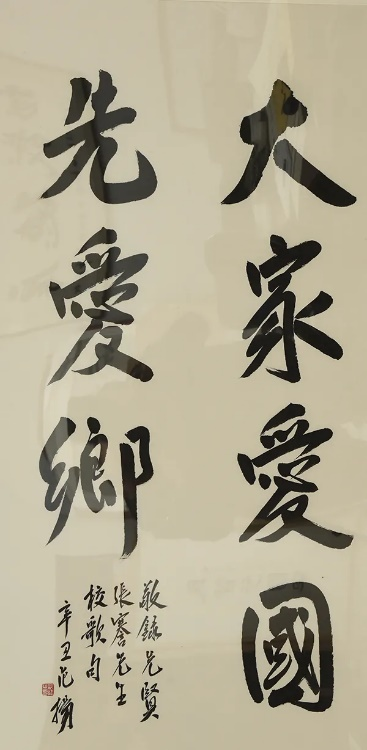 大家愛國
先愛鄉
敬録先賢
張謇先生
校歌句
辛丑范揚